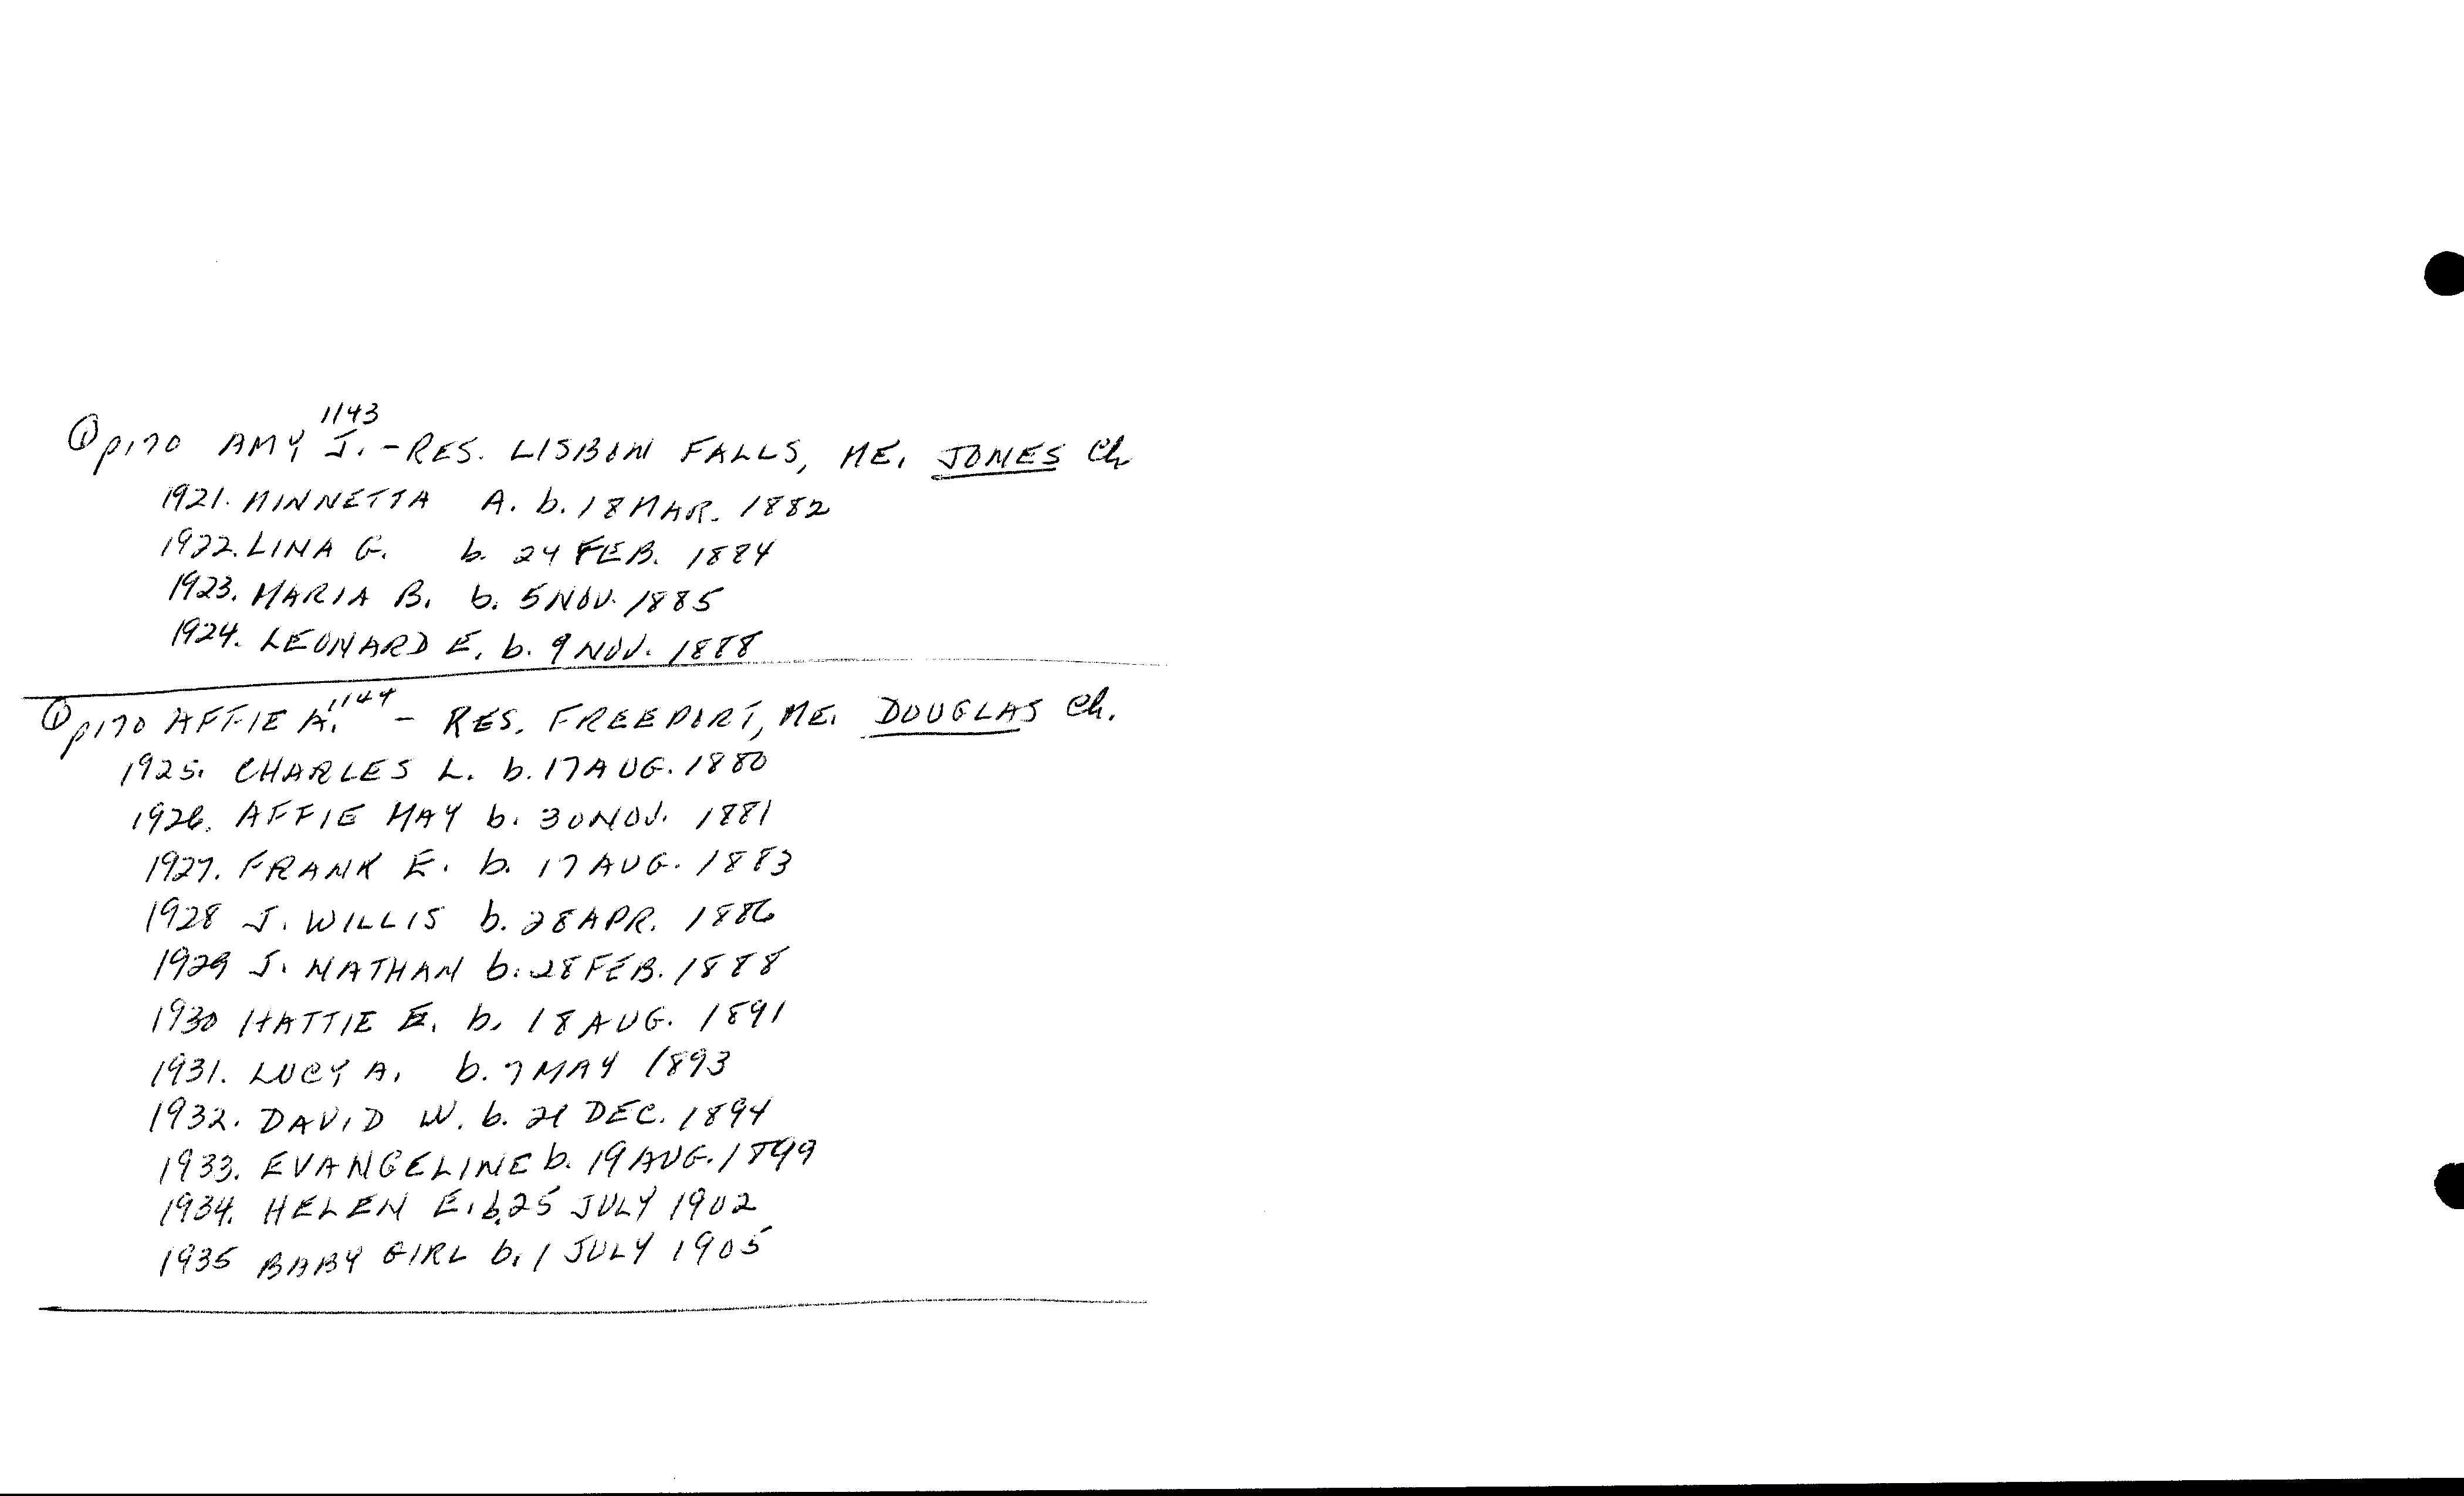 ① p170 AMY J.¹¹⁴³ - RES. LISBON FALLS, ME. JONES Ch
1921. MINNETTA A. b. 18 MAR. 1882
1922. LINA G. b. 24 FEB. 1884
1923. MARIA B. b. 5 NOV. 1885
1924. LEONARD E. b. 9 NOV. 1888
① p170 AFFIE A.¹¹⁴⁴ - RES. FREEPORT, ME. DOUGLAS Ch.
1925. CHARLES L. b. 17 AUG. 1880
1926. AFFIE MAY b. 30 NOV. 1881
1927. FRANK E. b. 17 AUG. 1883
1928 J. WILLIS b. 28 APR. 1886
1929 J. NATHAN b. 28 FEB. 1888
1930 HATTIE E. b. 18 AUG. 1891
1931. LUCY A. b. 7 MAY 1893
1932. DAVID W. b. 21 DEC. 1894
1933. EVANGELINE b. 19 AUG. 1899
1934. HELEN E. b. 25 JULY 1902
1935 BABY GIRL b. 1 JULY 1905